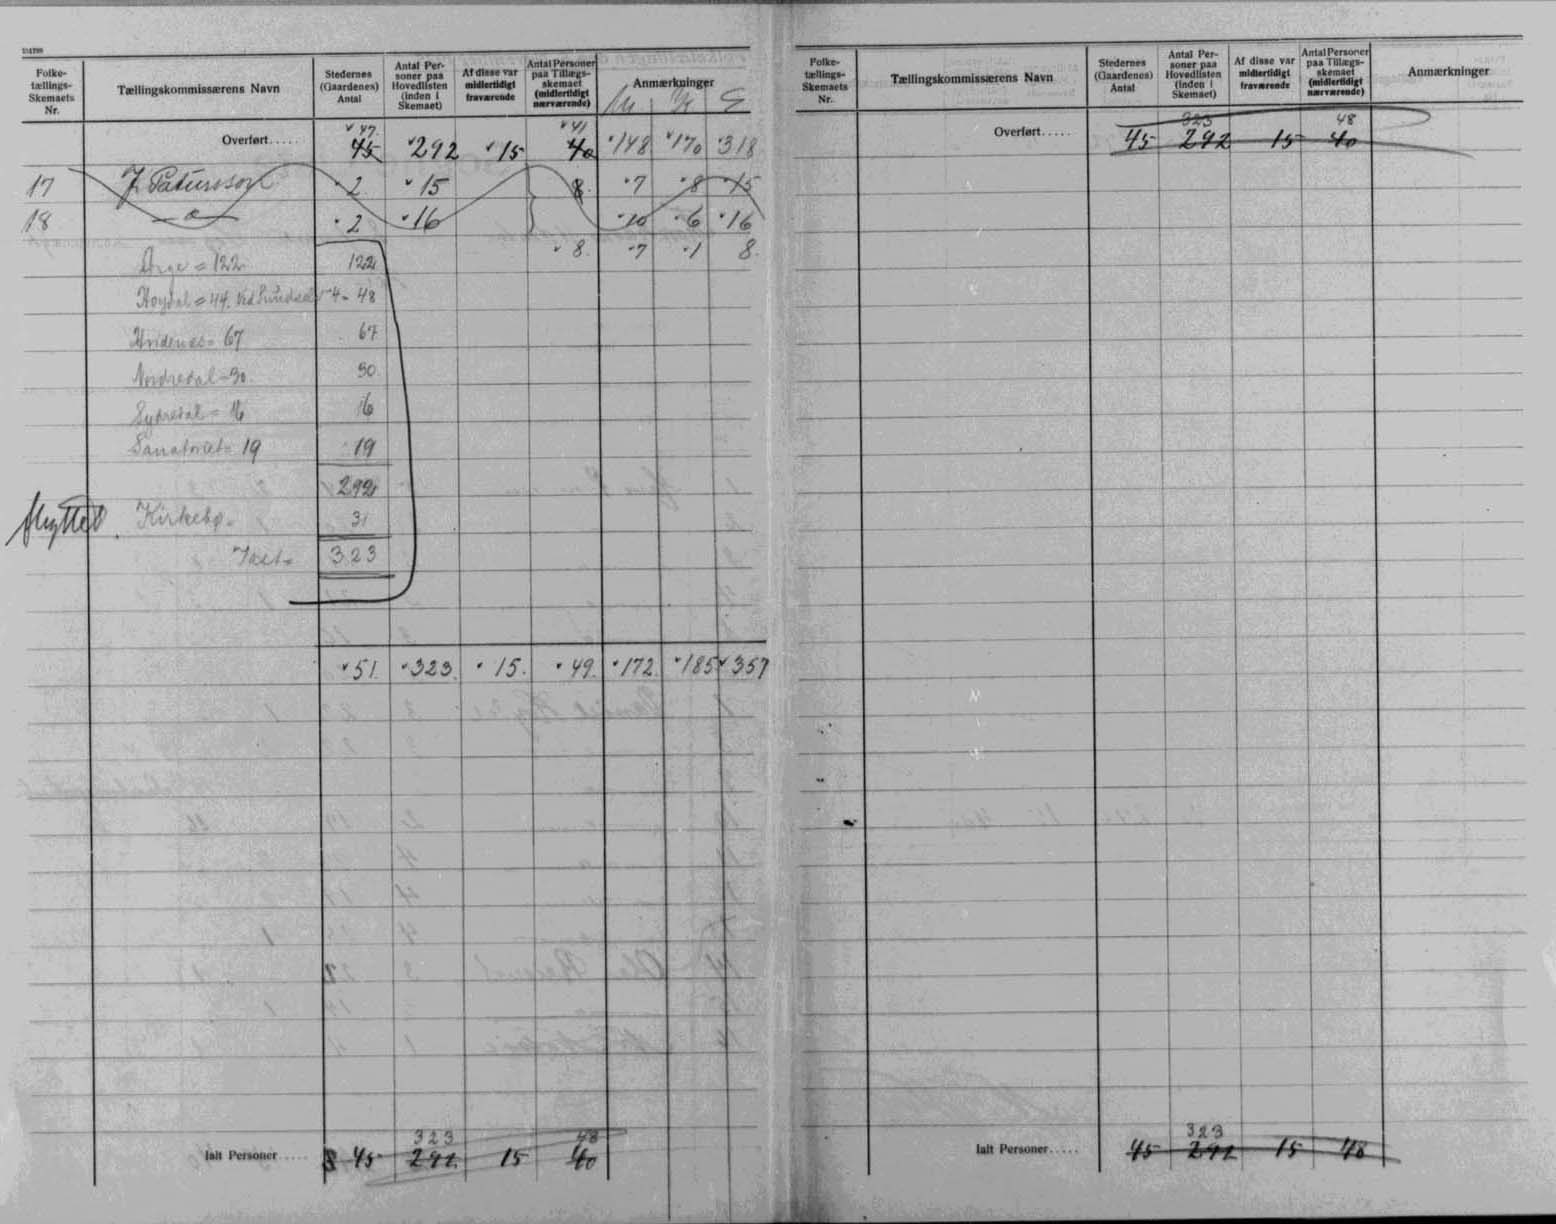 Folke-
tællings-
Skemaets
Nr.
Tællingskommissærens Navn
Stedernes
(Gaardenes)
Antal
Antal Per-
soner paa
Hovedlisten
(inden i
Skemaet)
Af disse var
midlertidigt
fraværende
Antal Personer
paa Tillægs-
skemaet
(midlertidigt
nærværende)
Anmærkninger
M K E
47 41
Overført..... 45 292 15 40 148 170 318
17 J. Patursson 2 15 8 7 8 15
18 — " — 2 16 10 6 16
8. 7 1 8.
Arge = 122 122
Hoydal = 44. Ved Sundsvej 4 - 48
Hvidenæs = 67 67
Nordredal = 30. 30
Sydredal = 16 16
Sanatoriet = 19 19
292
flyttet. Kirkebø = 31
Ialt = 323
51. 323. 15. 49. 172. 185 357
323 48
Ialt Personer..... 45 292 15 40
Folke-
tællings-
Skemaets
Nr.
Tællingskommissærens Navn
Stedernes
(Gaardenes)
Antal
Antal Per-
soner paa
Hovedlisten
(inden i
Skemaet)
Af disse var
midlertidigt
fraværende
Antal Personer
paa Tillægs-
skemaet
(midlertidigt
nærværende)
Anmærkninger
323 48
Overført..... 45 292 15 40
323
Ialt Personer..... 45 292 15 48